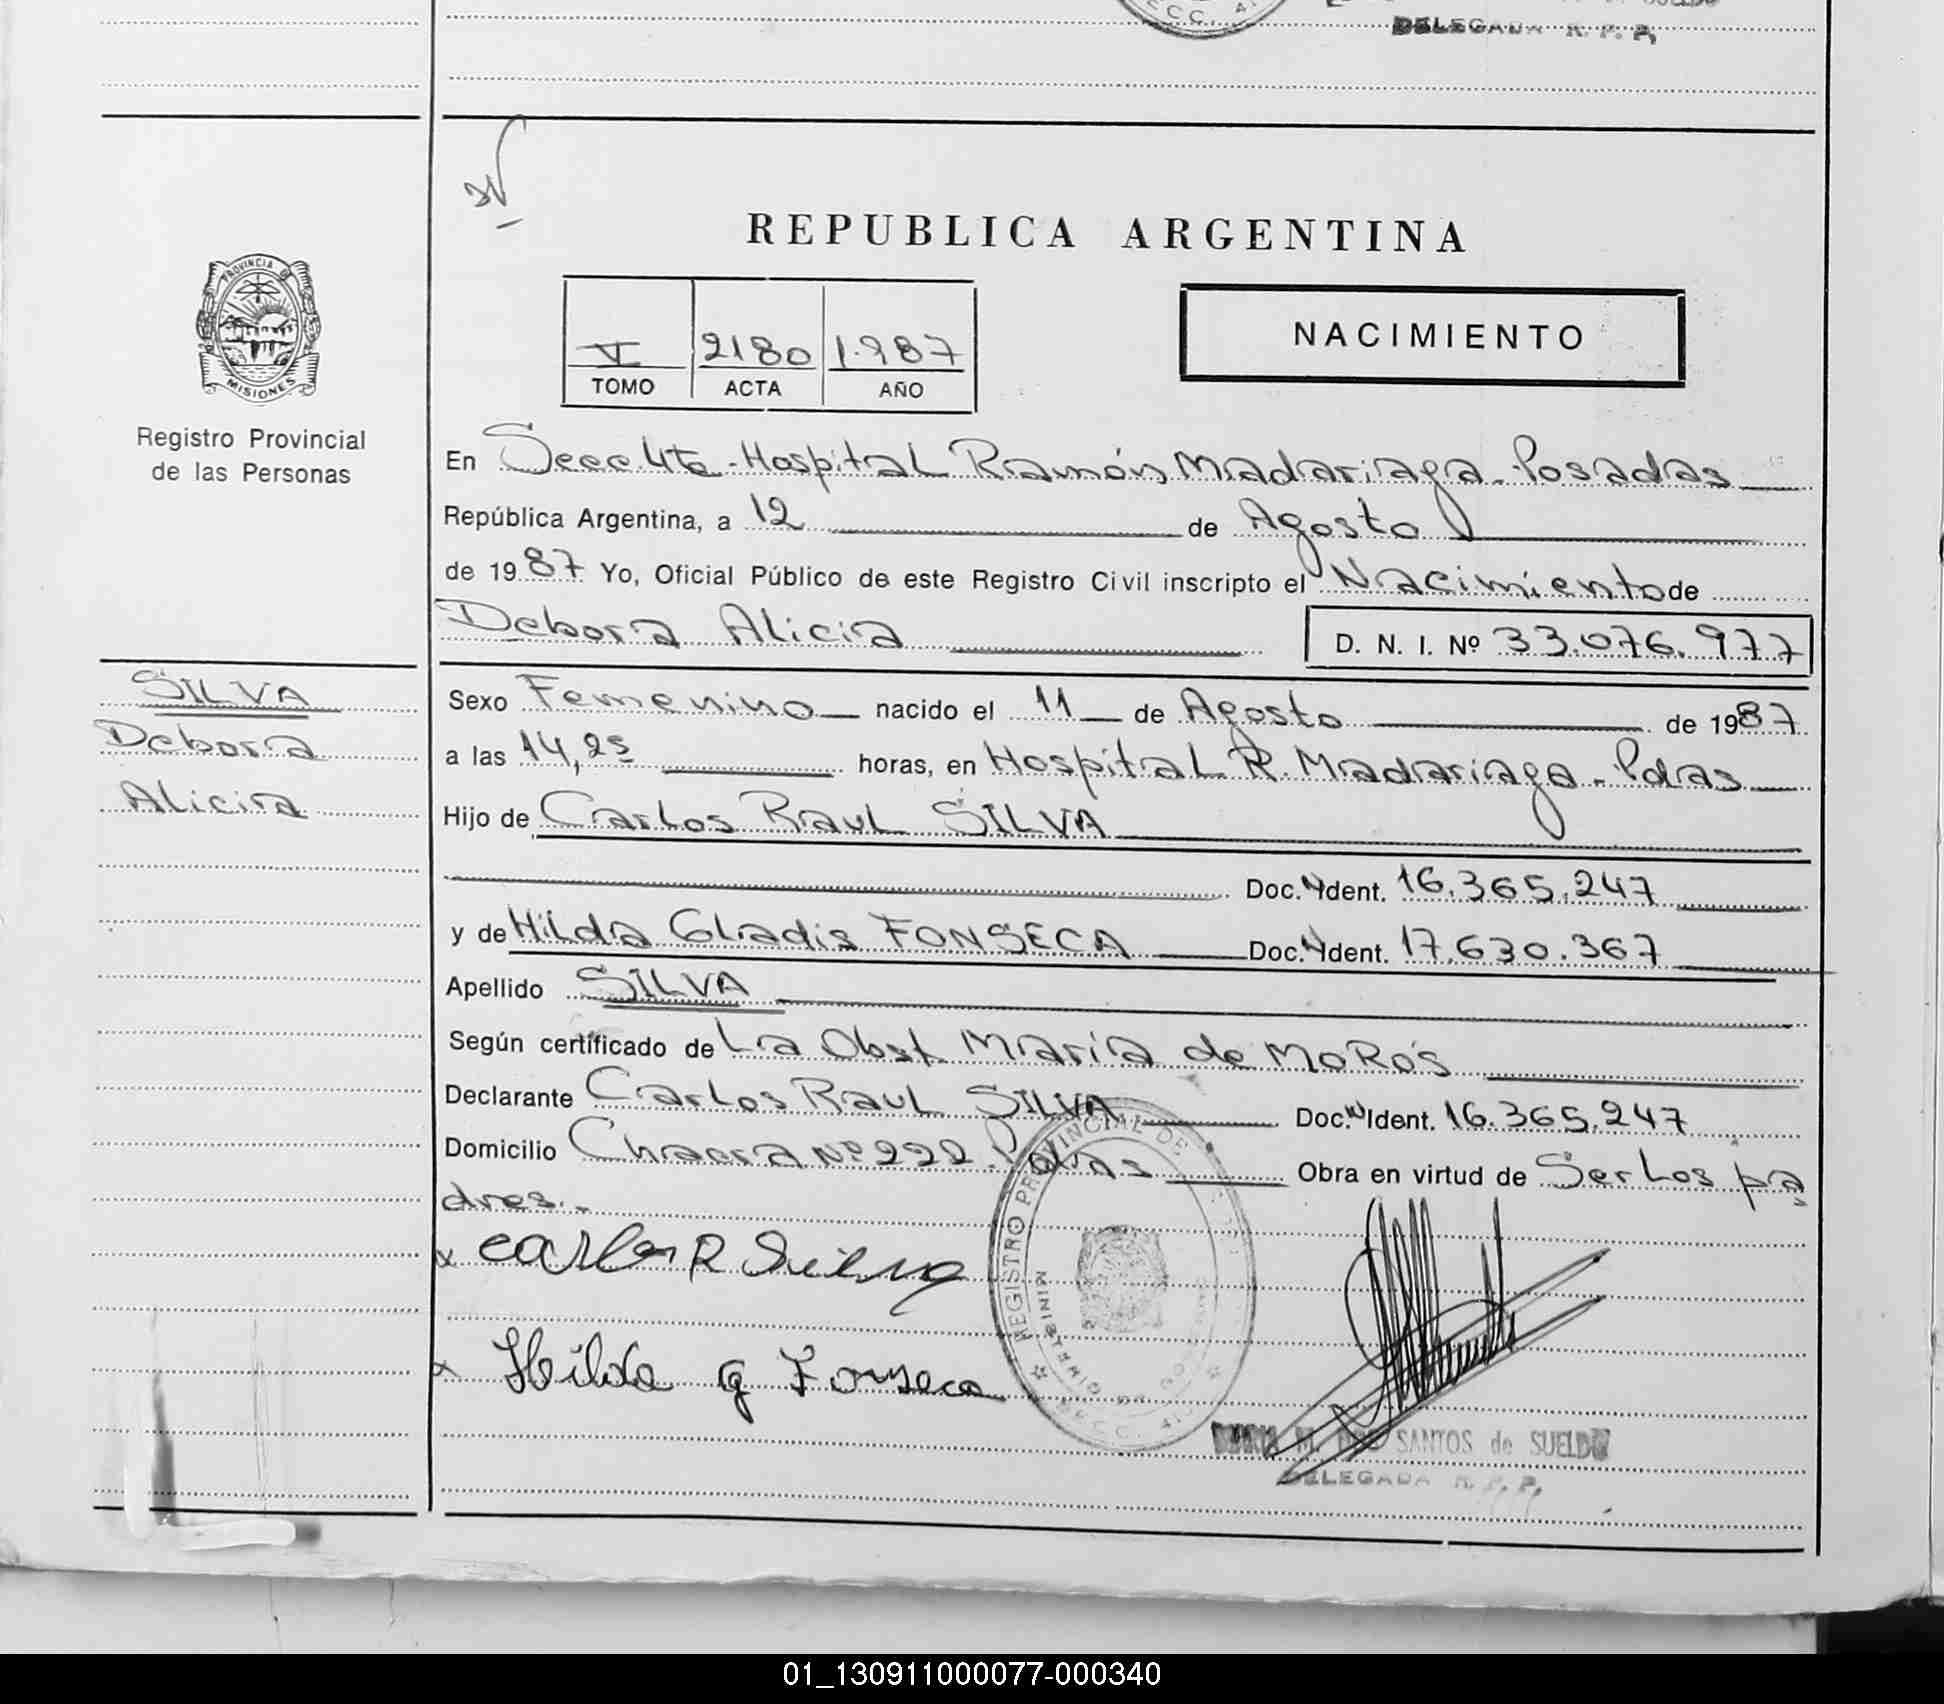 DELEGADA R. P. P.
REPUBLICA ARGENTINA
PROVINCIA DE
MISIONES
V 2180 1.987
TOMO ACTA AÑO
NACIMIENTO
Registro Provincial
de las Personas
En Secc 4ta - Hospital Ramón Madariaga - Posadas
República Argentina, a 12 de Agosto
de 1987 Yo, Oficial Público de este Registro Civil inscripto el Nacimiento de
Debora Alicia D. N. I. Nº 33.076.977
SILVA
Debora
Alicia
Sexo Femenino nacido el 11 de Agosto de 1987
a las 14,25 horas, en Hospital R. Madariaga - Pdas
Hijo de Carlos Raul SILVA
Doc. N Ident. 16.365.247
y de Hilda Gladis FONSECA Doc. N Ident. 17.630.367
Apellido SILVA
Según certificado de La Obst. María de MoRo's
Declarante Carlos Raul SILVA Doc. N Ident. 16.365.247
Domicilio Chacra Nº 222. Pdas Obra en virtud de Ser Los pa
dres.-
x Carlos R Silva
x Hilda G Fonseca
REGISTRO PROVINCIAL DE
MARIA M. DOS SANTOS de SUELDO
DELEGADA R. P. P.
01_130911000077-000340